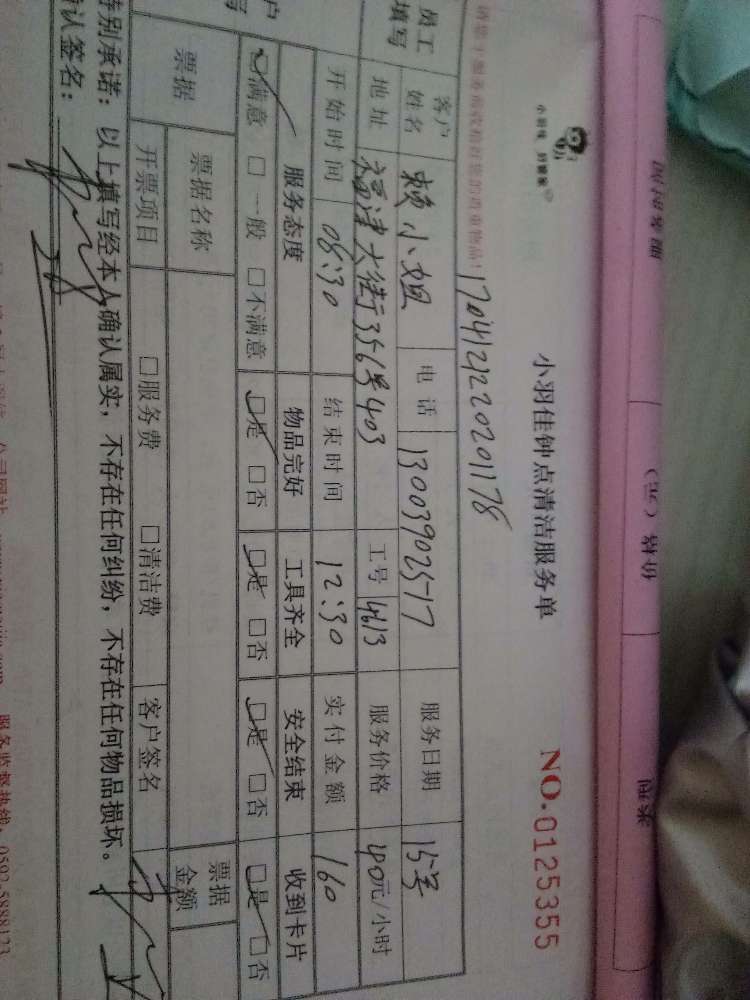 小羽佳 好管家
小羽佳钟点清洁服务单
NO.0125355
17041212220201178
员工填写
客户姓名 赖小姐 电话 13003902517 服务日期 15号
地址 福津大街356号403 工号 4613 服务价格 40元/小时
开始时间 08:30 结束时间 12:30 实付金额 160
服务态度 物品完好 工具齐全 安全结束 收到卡片
☑满意 □一般 □不满意 ☑是 □否 ☑是 □否 ☑是 □否 ☑是 □否
票据 票据名称 票据金额
开票项目 □服务费 □清洁费 客户签名
特别承诺：以上填写经本人确认属实，不存在任何纠纷，不存在任何物品损坏。
确认签名：
服务监督热线：0592-5888123